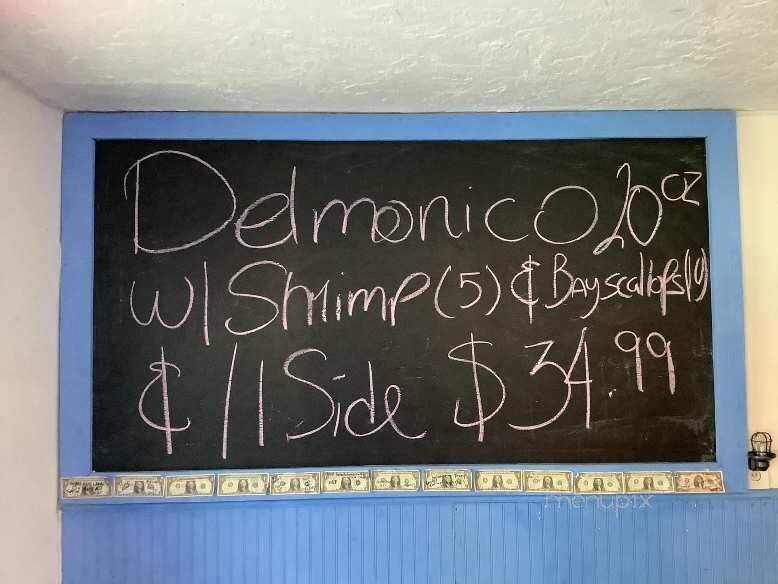 Delmonico 20 oz
w/ Shrimp (5) & Bay scallops
& // Side $34.99
menupix